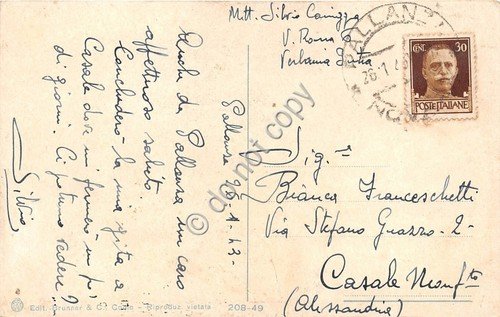 Mtt. Silvio Canigga
V. Roma 6
Verbania Intra
PALLANZA
26.1.43
NOVARA
CENT. 30
POSTE ITALIANE
Pallanza 26-1-43-
Anche da Pallanza un caro
affettuoso saluto.
Concluderò la mia gita a
Casale dove mi fermerò un pò
di giorni. Ci potremo vedere?
Silvio
Sig.na
Bianca Franceschetti
Via Stefano Guazzo -2-
Casale Monf.to
(Alessandria)
do not copy
Edit. Brunner & C., Como - Riproduz. vietata
208-49